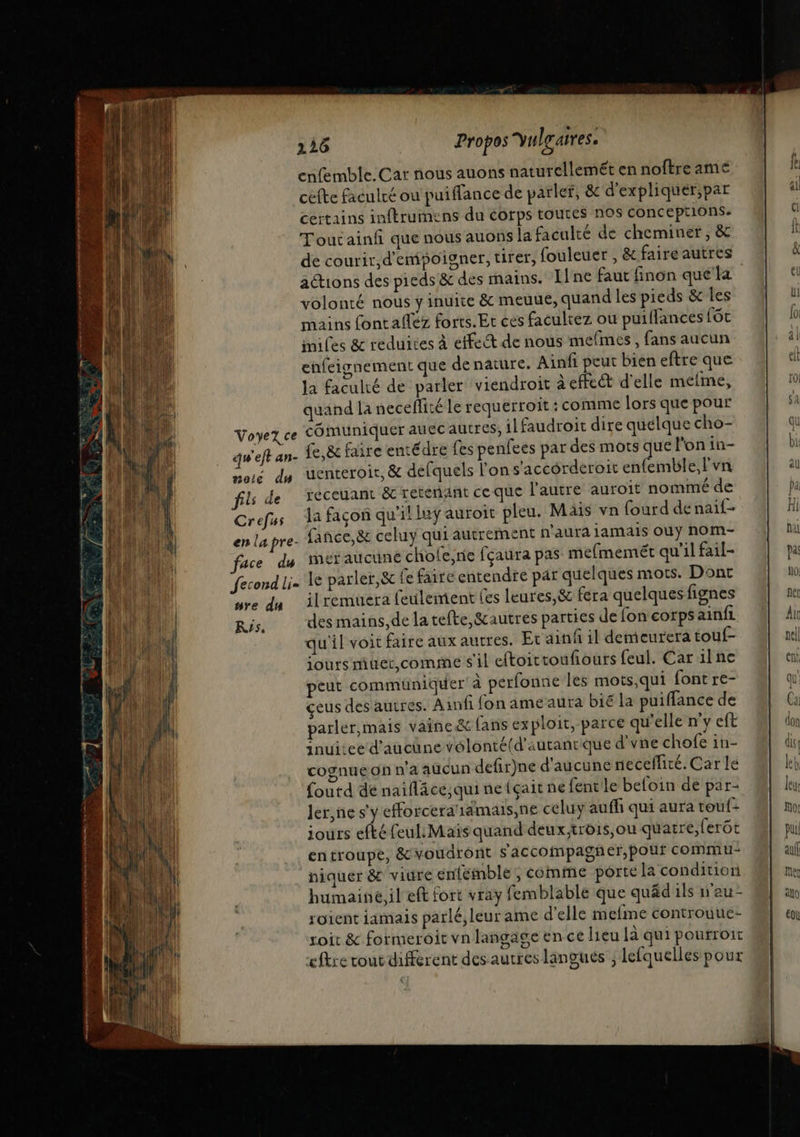 226 Propos vulgaires.
enſemble. Car nous auons naturellemēt en noſtre ame
ceſte faculté ou puiſſance de parler, & d'expliquer, par
certains inſtrumens du corps toutes nos conceptions.
Tout ainſi que nous auons la faculté de cheminer, &
de courir, d'empoigner, tirer, ſouleuer, & faire autres
actions des pieds & des mains. Il ne faut ſinon que la
volonté nous y inuite & meuue, quand les pieds & les
mains ſont aſſez forts. Et ces facultez ou puiſſances ſōt
miſes & reduites à effect de nous meſmes, ſans aucun
enſeignement que de nature. Ainſi peut bien eſtre que
la faculté de parler viendroit à effect d'elle meſme,
quand la neceſſité le requerroit : comme lors que pour
cōmuniquer auec autres, il faudroit dire quelque cho-
ſe, & faire entēdre ſes penſees par des mots que l'on in-
uenteroit, & deſquels l'on s'accorderoit enſemble, l'vn
receuant & retenant ce que l'autre auroit nommé de
la façon qu'il luy auroit pleu. Mais vn ſourd de naiſ-
ſance, & celuy qui autrement n'aura iamais ouy nom-
mer aucune choſe, ne ſçaura pas meſmemēt qu'il fail-
le parler, & ſe faire entendre par quelques mots. Dont
il remuera ſeulement ſes leures, & fera quelques ſignes
des mains, de la teſte, & autres parties de ſon corps ainſi
qu'il voit faire aux autres. Et ainſi il demeurera touſ-
iours muet, comme s'il eſtoit touſiours ſeul. Car il ne
peut communiquer à perſonne les mots, qui ſont re-
çeus des autres. Ainſi ſon ame aura biē la puiſſance de
parler, mais vaine & ſans exploit, parce qu'elle n'y eſt
inuitee d'aucune volonté (d'autant que d'vne choſe in-
cognue on n'a aucun deſir) ne d'aucune neceſſité. Car le
ſourd de naiſſāce, qui ne ſçait ne ſent le beſoin de par-
ler, ne s'y efforcera iamais, ne celuy auſſi qui aura touſ-
iours eſté ſeul. Mais quand deux, trois, ou quatre, ſerōt
en troupe, & voudront s'accompagner, pour commu-
niquer & viure enſemble, comme porte la condition
humaine, il eſt fort vray ſemblable que quād ils n'au-
roient iamais parlé, leur ame d'elle meſme controuue-
roit & formeroit vn langage en ce lieu là qui pourroit
eſtre tout different des autres langues, leſquelles pour
Voyez ce
qu'eſt an-
noté du
fils de
Creſus
en la pre-
face du
ſecond li-
ure du
Ris.